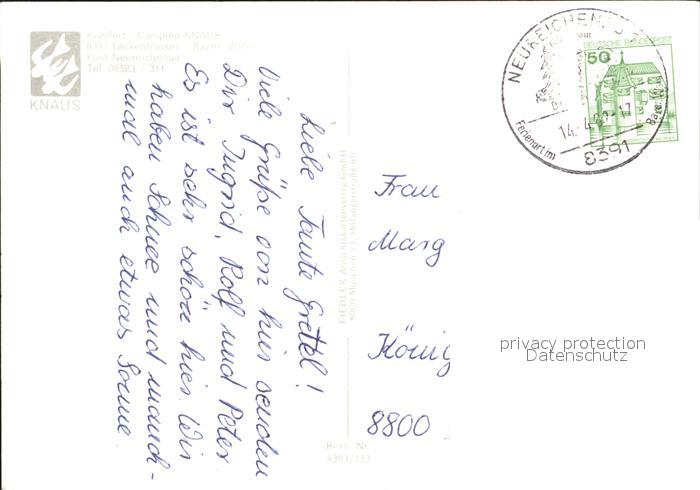 Komfort - Camping KNAUS
8391 Lackenhäuser Bayer. Wald
Post Neureichenau
Tel. 08583 / 311
KNAUS
Liebe Tante Gretel!
Viele Grüße von hier senden
Dir Ingrid, Rolf und Peter.
Es ist sehr schön hier. Wir
haben Schnee und manch-
mal auch etwas Sonne.
FIEDLER Ansichtskartenverlag GmbH
8000 München
Best.-Nr.
8391/233
NEUREICHENAU 1
Ferienort im Bayer. Wald
14.-4.
8391
DEUTSCHE BUNDESPOST
50
Frau
Marg
König
8800
privacy protection
Datenschutz